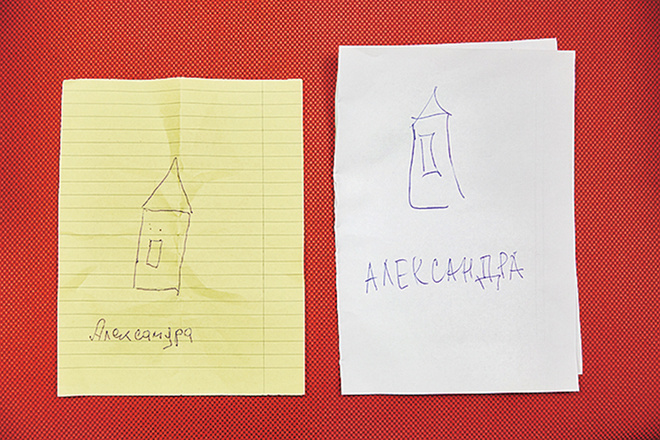 Александра
АЛЕКСАНДРА